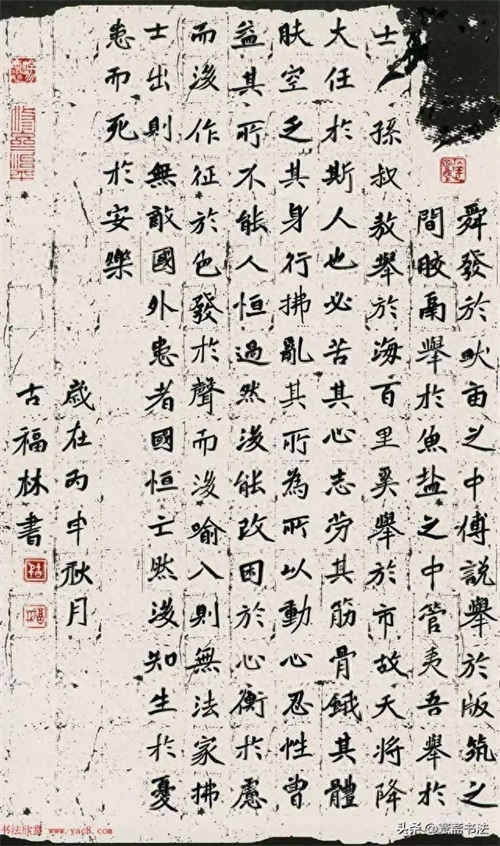 舜發於畎亩之中傅說舉於版筑之
間胶鬲舉於魚盐之中管夷吾舉於
士孫叔敖舉於海百里奚舉於市故天將降
大任於斯人也必苦其心志劳其筋骨餓其體
肤空乏其身行拂亂其所為所以動心忍性曾
益其所不能人恒過然後能改困於心衡於慮
而後作征於色發於聲而後喻入則無法家拂
士出則無敵國外患者國恒亡然後知生於憂
患而死於安樂
歲在丙申秋月
古福林書
书法欣赏 www.yac8.com
头条 @斋书法